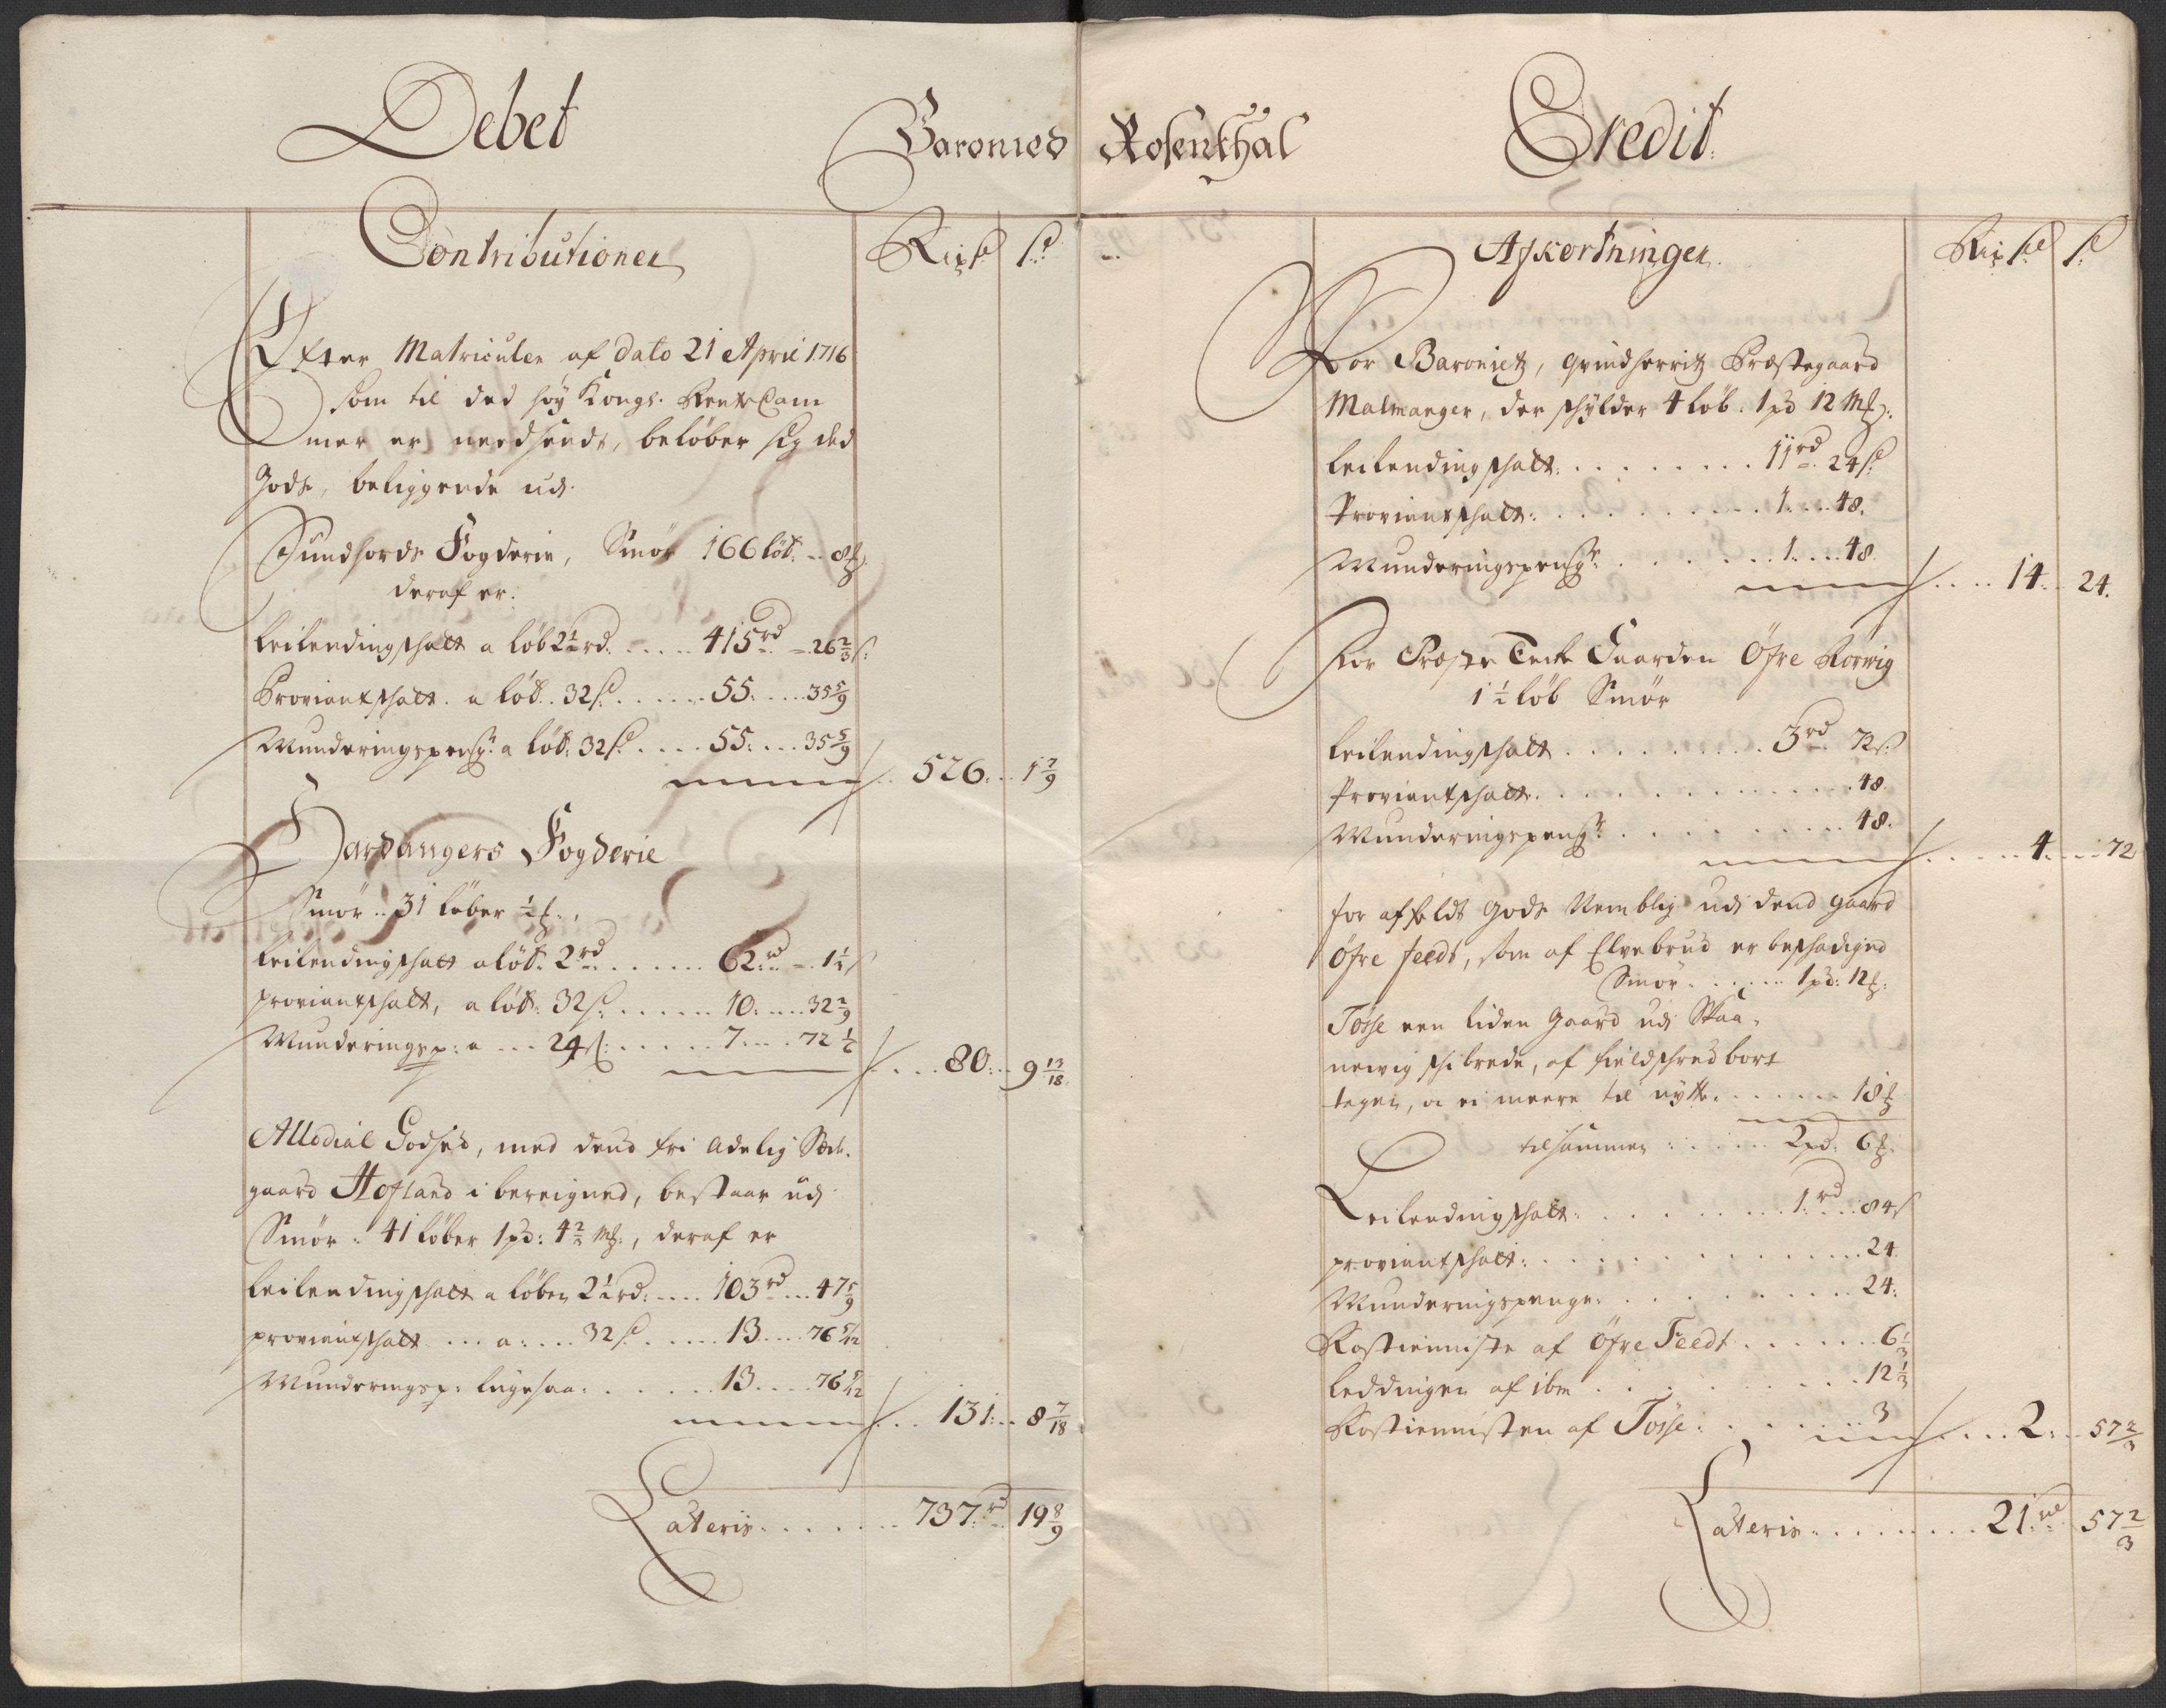 Debet
Baronied Rosenthal
Credit.
Contributioner
Rixd ſs
Efter Matriculen af dato 21 April 1716
som til ded høy Kongl. Rente Cam
mer er neersendt, beløber sig ded
Gods, beliggende udj
Sundhords Fogderie, Smør 166 løb. - 8 ℔
deraf er.
Leilendingschatt a løb 2½ rd. . . . . . 415 rd - 26⅔ s:
Proviantschatt. a løb. 32 s. . . . . . 55. . . . 35 5/9
Munderingspeng: a løb: 32 s. . . . . 55. . . . 35 5/9
526. . . 1 7/9
Hardangers Fogderie
Smør . . 31 løber ½ ℔.,
Leilendingschatt a løb. 2 rd. . . . . . 62. rd - 1¼ s
proviantschatt, a løb: 32 s. . . . . . . 10. . . . 32 2/9
Munderingsp: a . . . 24 s: . . . . . 7. . . . 72 ½
. . . 80. . . 9 13/18.
Allodial Godsed, med dend fri Adelig Sæde-
gaard Hofland i bereigned, bestaar udj
Smør . 41 løber 1 pd: 4 2/2 m℔:, deraf er
Leilendingschatt a løben 2½ rd: . . . . 103 rd . . . 47 5/9
proviantschatt . . . a: . . . 32 s. . . . . 13. . . . 76 5/12
Munderingsp: ligesaa: . . . . . . 13. . . . 76 5/12
. . . 131: . . 8 7/18
Lateris. . . . . . . 737. rd 19 8/9
Afkortninger.
Rixd ſs
For Baroniets, Qvindherrits Præstegaard
Malmanger, der schylder 4 løb. 1 pd 12 m℔:
Leilendingschatt. . . . . . . . . 11 rd 24 s
Proviantschatt: . . . . . . . . . . 1. . . . 48.
Munderingspeng: . . . . . . . 1. . . . 48.
. . . . 14. . . 24.
For Præste Encke Gaarden Øfre Rørvig
1½ løb Smør
Leilendingschatt . . . . . . . . . 3 rd 72 s
Proviantschatt. . . . . . . . . . . . . 48.
Munderingspeng: . . . . . . . . . 48.
. . . . . 4. . . . 72
for affeldt Gods Nemblig udj dend gaard
Øfre feedt, som af Elvebrud er beschadiged
Smør. . . . . . 1 pd: 12 ℔:
Tøsse een liden Gaard udj Skaa-
nevig schibrede, af fieldschred bort
tagen, oc ei meere til nytte. . . . . . . 18 ℔
tilsammen : . . . . . 2 pd: 6 ℔.
Leilendingschatt: . . . . . . . . . 1. rd . . 84 s
proviantschatt: . . . . . . . . . . . . . 24.
Munderingspenge: . . . . . . . . . . 24:
Rostienniste af Øfre Feedt . . . . . . 6⅓
Leddingen af ibm . . . . . . . . . . 12⅓
Rostiennisten af Tøsse: . . . . . . . 3
. . . 2. . . 57⅔
Lateris . . . . . . . . . 21. rd 57⅔